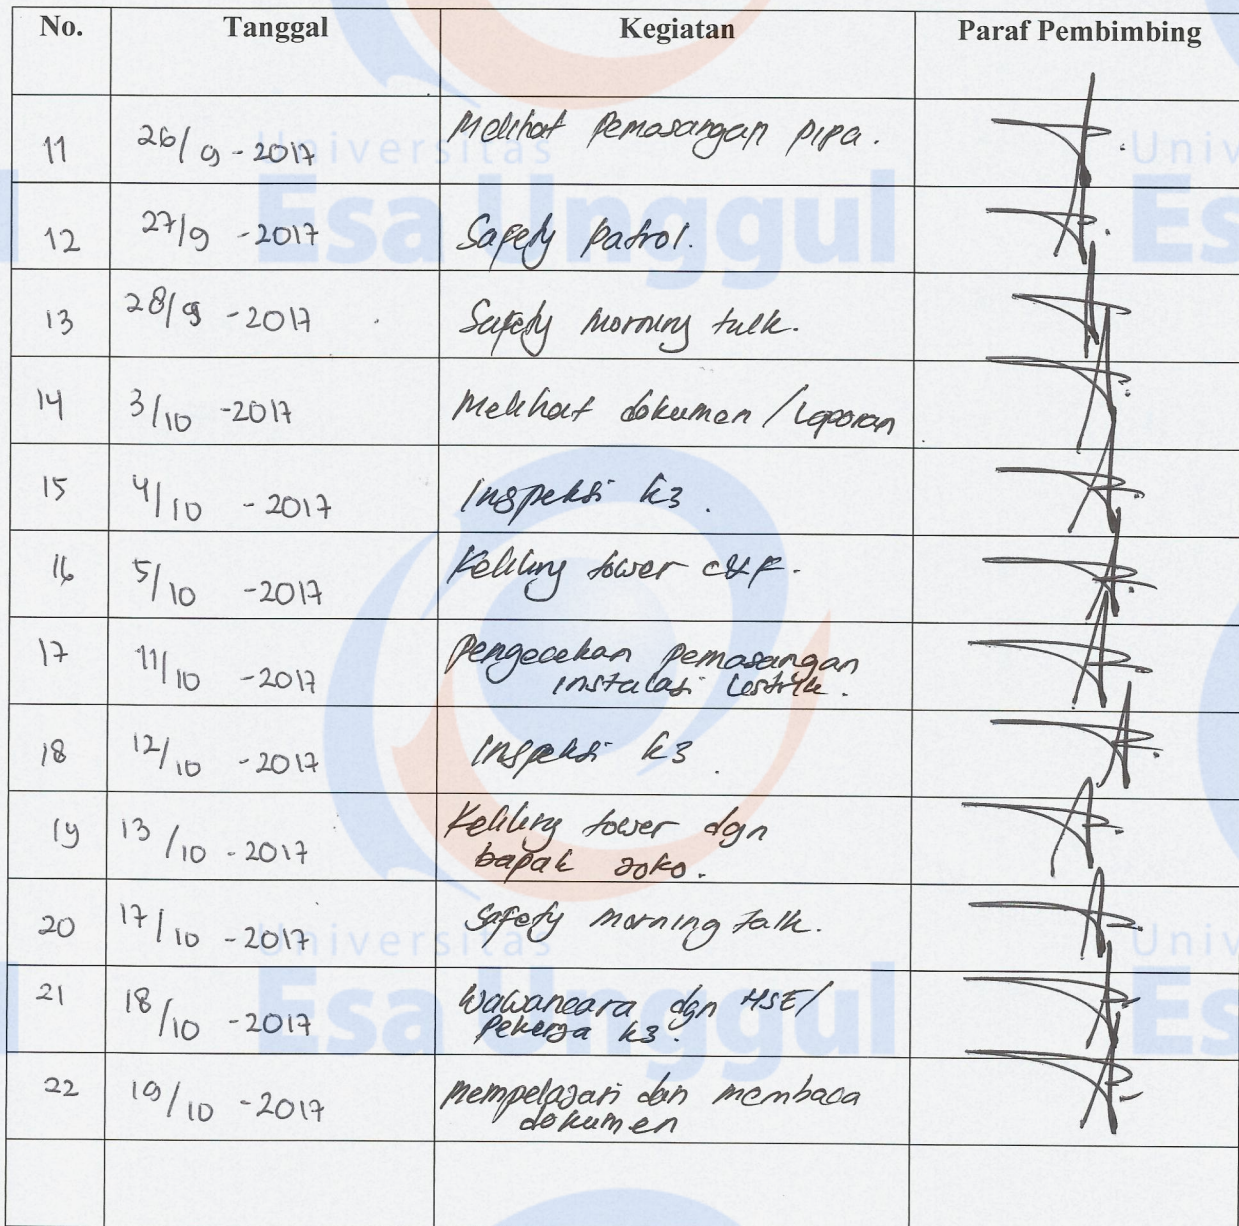 No. Tanggal Kegiatan Paraf Pembimbing
11 26/9 - 2017 Melihat Pemasangan pipa.
12 27/9 - 2017 Safety Patrol.
13 28/9 - 2017 Safety Morning talk.
14 3/10 - 2017 Melihat dokumen / Laporan
15 4/10 - 2017 Inspeksi k3.
16 5/10 - 2017 Keliling tower c&F.
17 11/10 - 2017 Pengecekan Pemasangan
instalasi listrik.
18 12/10 - 2017 Inspeksi k3.
19 13/10 - 2017 Keliling tower dgn
bapak Joko.
20 17/10 - 2017 Safety morning talk.
21 18/10 - 2017 Wawancara dgn HSE/
Pekerja k3.
22 19/10 - 2017 Mempelajari dan membaca
dokumen
Universitas
Esa Unggul
Universitas
Esa Unggul